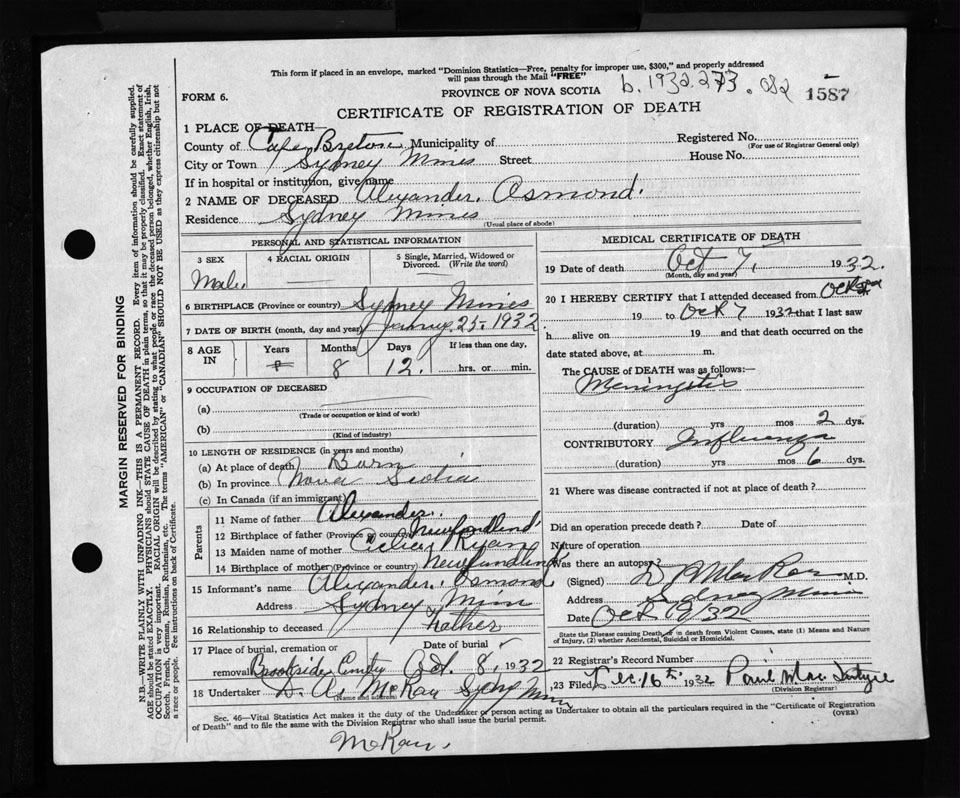 This form if placed in an envelope, marked "Dominion Statistics—Free, penalty for improper use, $300," and properly addressed
will pass through the Mail "FREE"
FORM 6.
PROVINCE OF NOVA SCOTIA
b. 1932.273.082
1587
CERTIFICATE OF REGISTRATION OF DEATH
1 PLACE OF DEATH—
County of Cape Breton Municipality of
Registered No.
(For use of Registrar General only)
City or Town Sydney Mines Street House No.
If in hospital or institution, give name
2 NAME OF DECEASED Alexander Osmond
Residence Sydney Mines
(Usual place of abode)
PERSONAL AND STATISTICAL INFORMATION
3 SEX
4 RACIAL ORIGIN
5 Single, Married, Widowed or
Divorced. (Write the word)
Male
6 BIRTHPLACE (Province or country) Sydney Mines
7 DATE OF BIRTH (month, day and year) January 25. 1932
8 AGE IN
Years Months Days If less than one day,
8 12. hrs. or min.
9 OCCUPATION OF DECEASED
(a)
(Trade or occupation or kind of work)
(b)
(Kind of industry)
10 LENGTH OF RESIDENCE (in years and months)
(a) At place of death Born
(b) In province Nova Scotia
(c) In Canada (if an immigrant)
Parents
11 Name of father Alexander.
12 Birthplace of father (Province or country) Newfoundland
13 Maiden name of mother Ryan
14 Birthplace of mother (Province or country) Newfoundland
15 Informant's name Alexander Osmond
Address Sydney Mines
16 Relationship to deceased Father
17 Place of burial, cremation or
removal
Date of burial
Brookside Oct. 8, 1932
18 Undertaker D. A. McRae Sydney Mines
(Name and address)
MEDICAL CERTIFICATE OF DEATH
19 Date of death Oct 7, 1932.
(Month, day and year)
20 I HEREBY CERTIFY that I attended deceased from Oct
19 to Oct 7 1932 that I last saw
h alive on 19 and that death occurred on
date stated above, at m.
The CAUSE of DEATH was as follows:—
Meningitis
(duration) yrs mos 2 dys.
CONTRIBUTORY Influenza
(duration) yrs mos 6 dys.
21 Where was disease contracted if not at place of death?
Did an operation precede death? Date of
Nature of operation
Was there an autopsy?
(Signed) M.D.
Address Sydney Mines
Date Oct 10/32
State the Disease causing Death, or in death from Violent Causes, state (1) Means and Nature
of Injury, (2) whether Accidental, Suicidal or Homicidal.
22 Registrar's Record Number
23 Filed Dec. 16th 1932
(Division Registrar)
Sec. 46—Vital Statistics Act makes it the duty of the Undertaker or person acting as Undertaker to obtain all the particulars required in the "Certificate of Registration
of Death" and to file the same with the Division Registrar who shall issue the burial permit.
(OVER)
McRae.
MARGIN RESERVED FOR BINDING
N.B.—WRITE PLAINLY WITH UNFADING INK—THIS IS A PERMANENT RECORD. Every item of information should be carefully supplied.
AGE should be stated EXACTLY. PHYSICIANS should STATE CAUSE OF DEATH in plain terms, so that it may be properly classified. Exact statement of
OCCUPATION is very important. RACIAL ORIGIN will be described by stating to what people or race the deceased person belonged, whether English, Irish,
Scotch, French, German, Russian, Ruthenian, etc. The terms "AMERICAN" or "CANADIAN" SHOULD NOT BE USED as they express citizenship but not
a race or people. See instructions on back of Certificate.